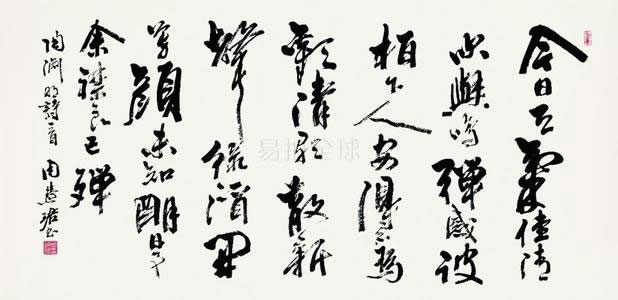 今日天氣佳清
吹與鳴彈感彼
柏下人安得不為
歡清歌散新
聲綠酒開
芳顏未知明日事
余襟良已殫
陶淵明詩一首 周慧珺书
易拍全球